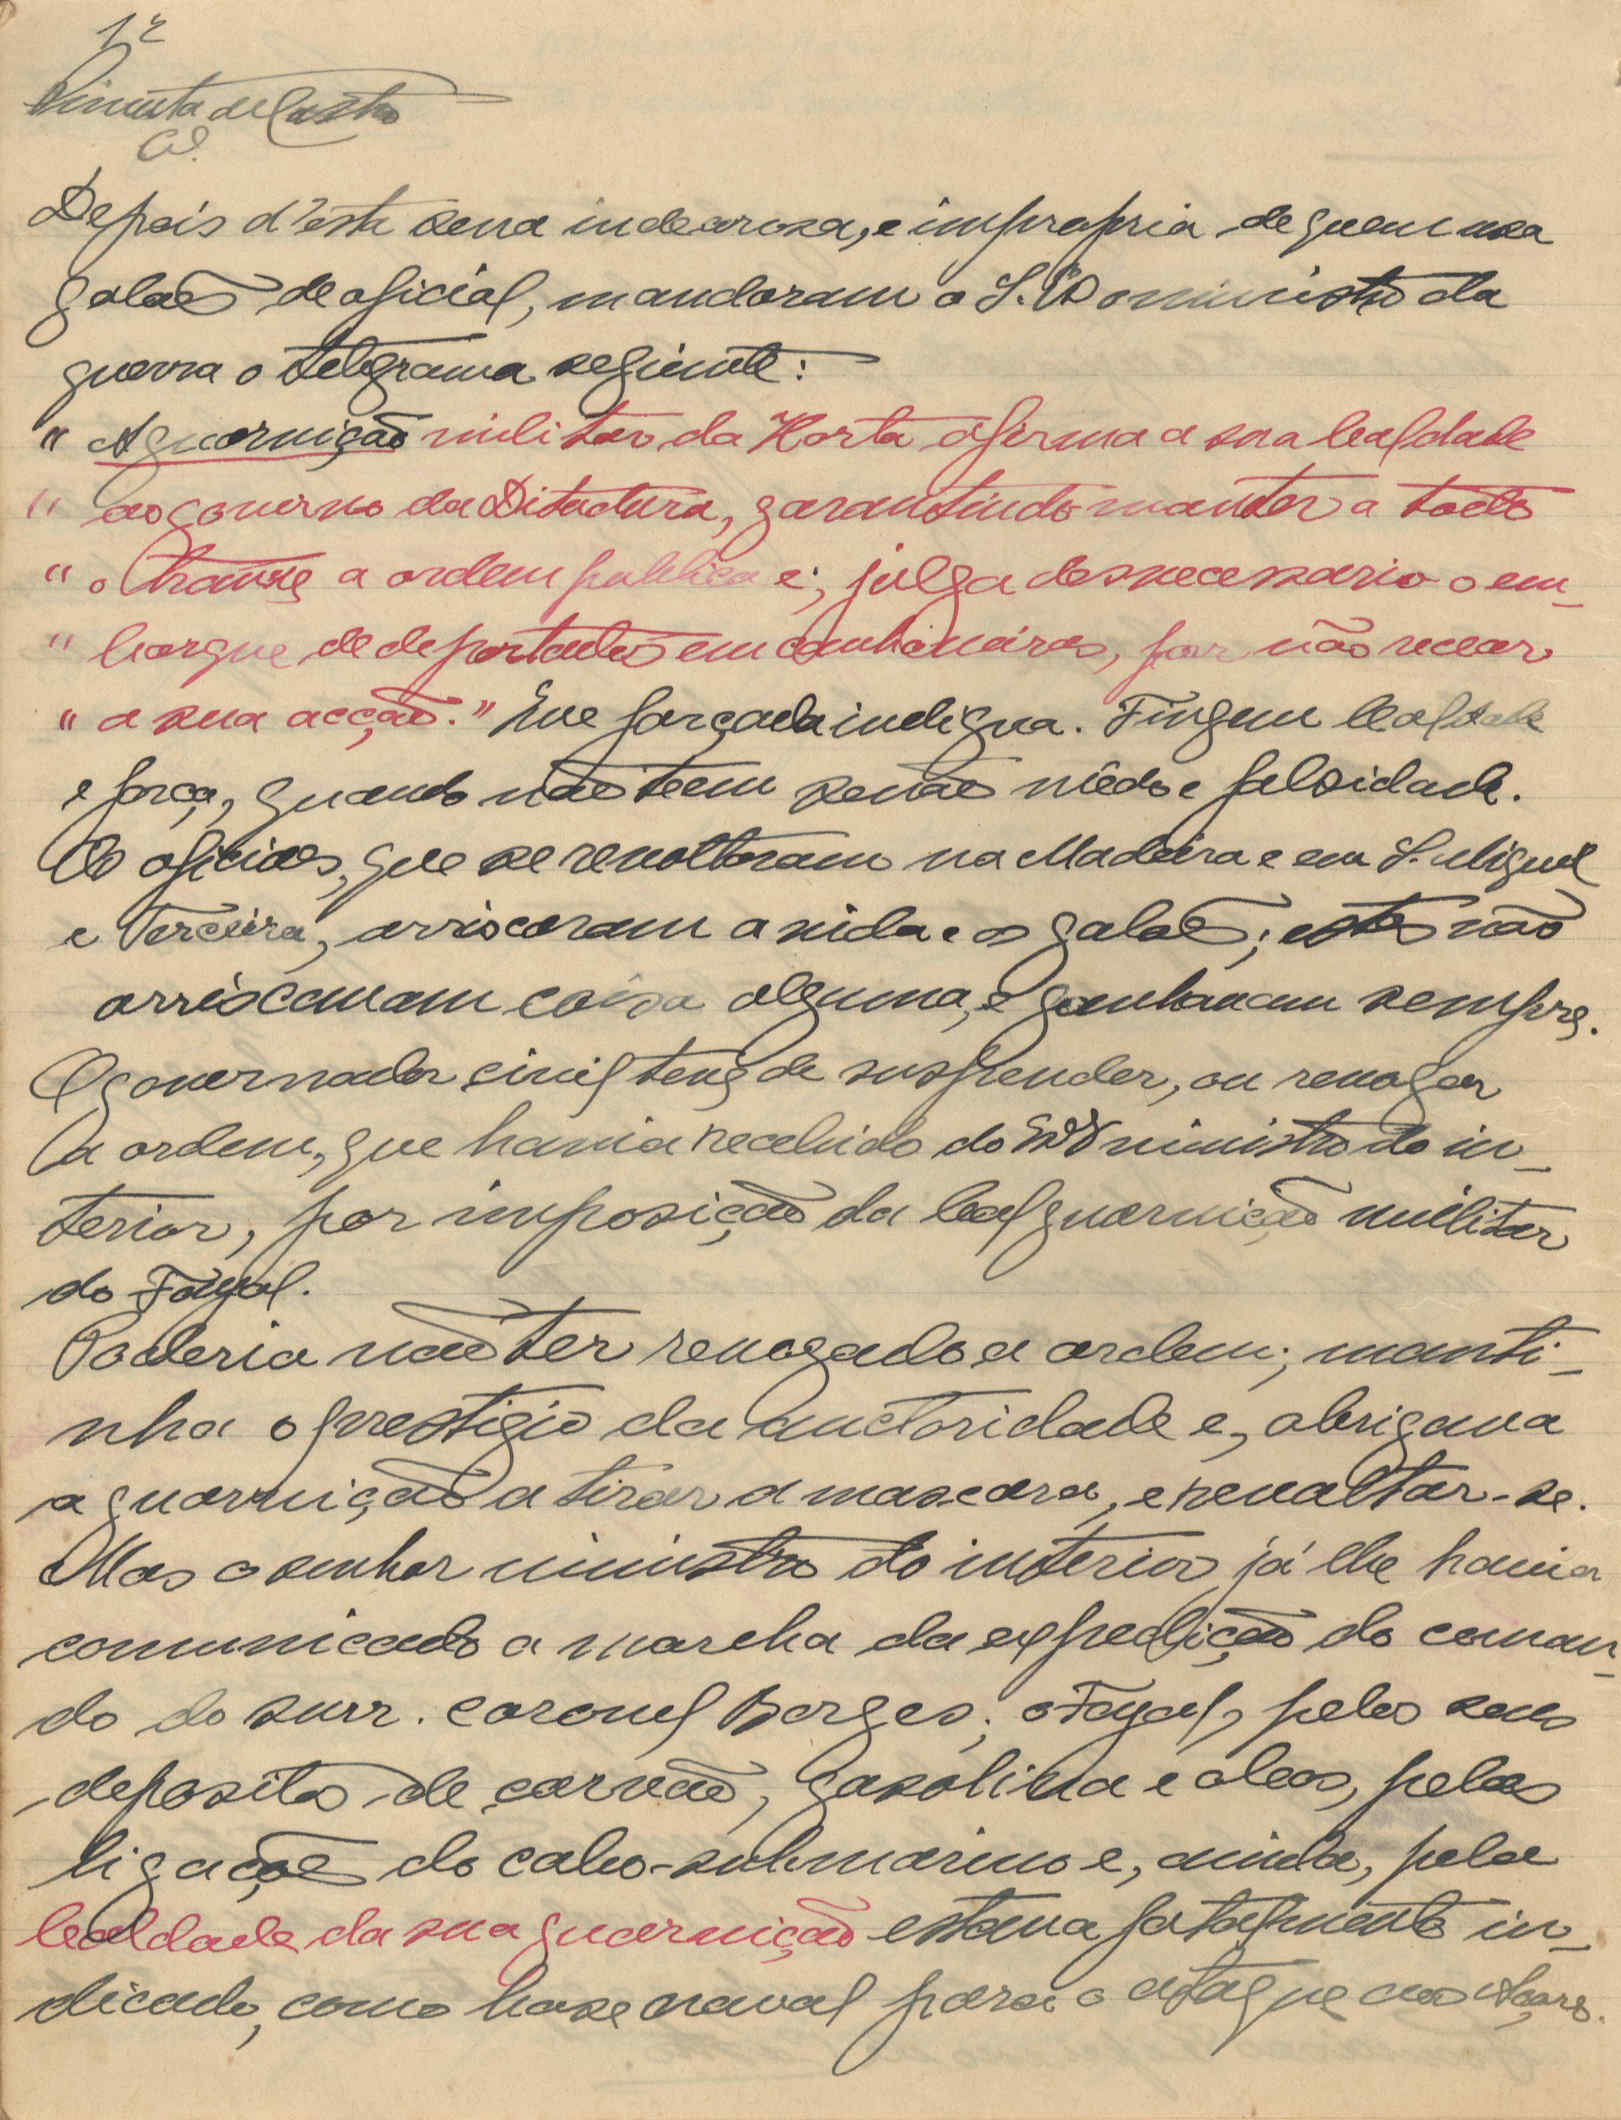 1º
Pimenta de Castro
Cel.
Depois d'esta scena indecorosa, e impropria de quem usa
galaes de oficial, mandaram o S. Exº ministro da
guerra o telegrama seguinte:
" A guarnição militar da Horta afirma a sua lealdade
" ao governo da Ditadura, garantindo manter a todo
" o transe a ordem publica e; julga desnecessario o em-
" barque de deportados em canhoneiras, por não recear
" a sua acção." Que farçada indigna. Fingem lealdade
e força, quando não teem senão mêdo e falsidade.
Os oficiaes, que se revoltaram na Madeira e em S. Miguel
e Terceira, arriscaram a vida e os galaes; estes não
arriscavam coisa alguma, e ganhavam sempre.
O governador civil teve de suspender, ou revogar
a ordem, que havia recebido do Exº ministro do in-
terior, por imposição da leal guarnição militar
do Fayal.
Poderia não ter revogado a ordem; manti-
nha o prestigio da auctoridade e, obrigava
a guarnição a tirar a mascara, e revoltar-se.
Mas o senhor ministro do interior já lhe havia
comunicado a marcha da expedição do coman-
do do snrr. coronel Borges; o Fayal, pelos seus
depositos de carvão, gasolina e oleos, pelas
ligações do cabo-submarino e, ainda, pela
lealdade da sua guarnição estava fatalmente in-
dicado, como base naval para o ataque aos Açores.